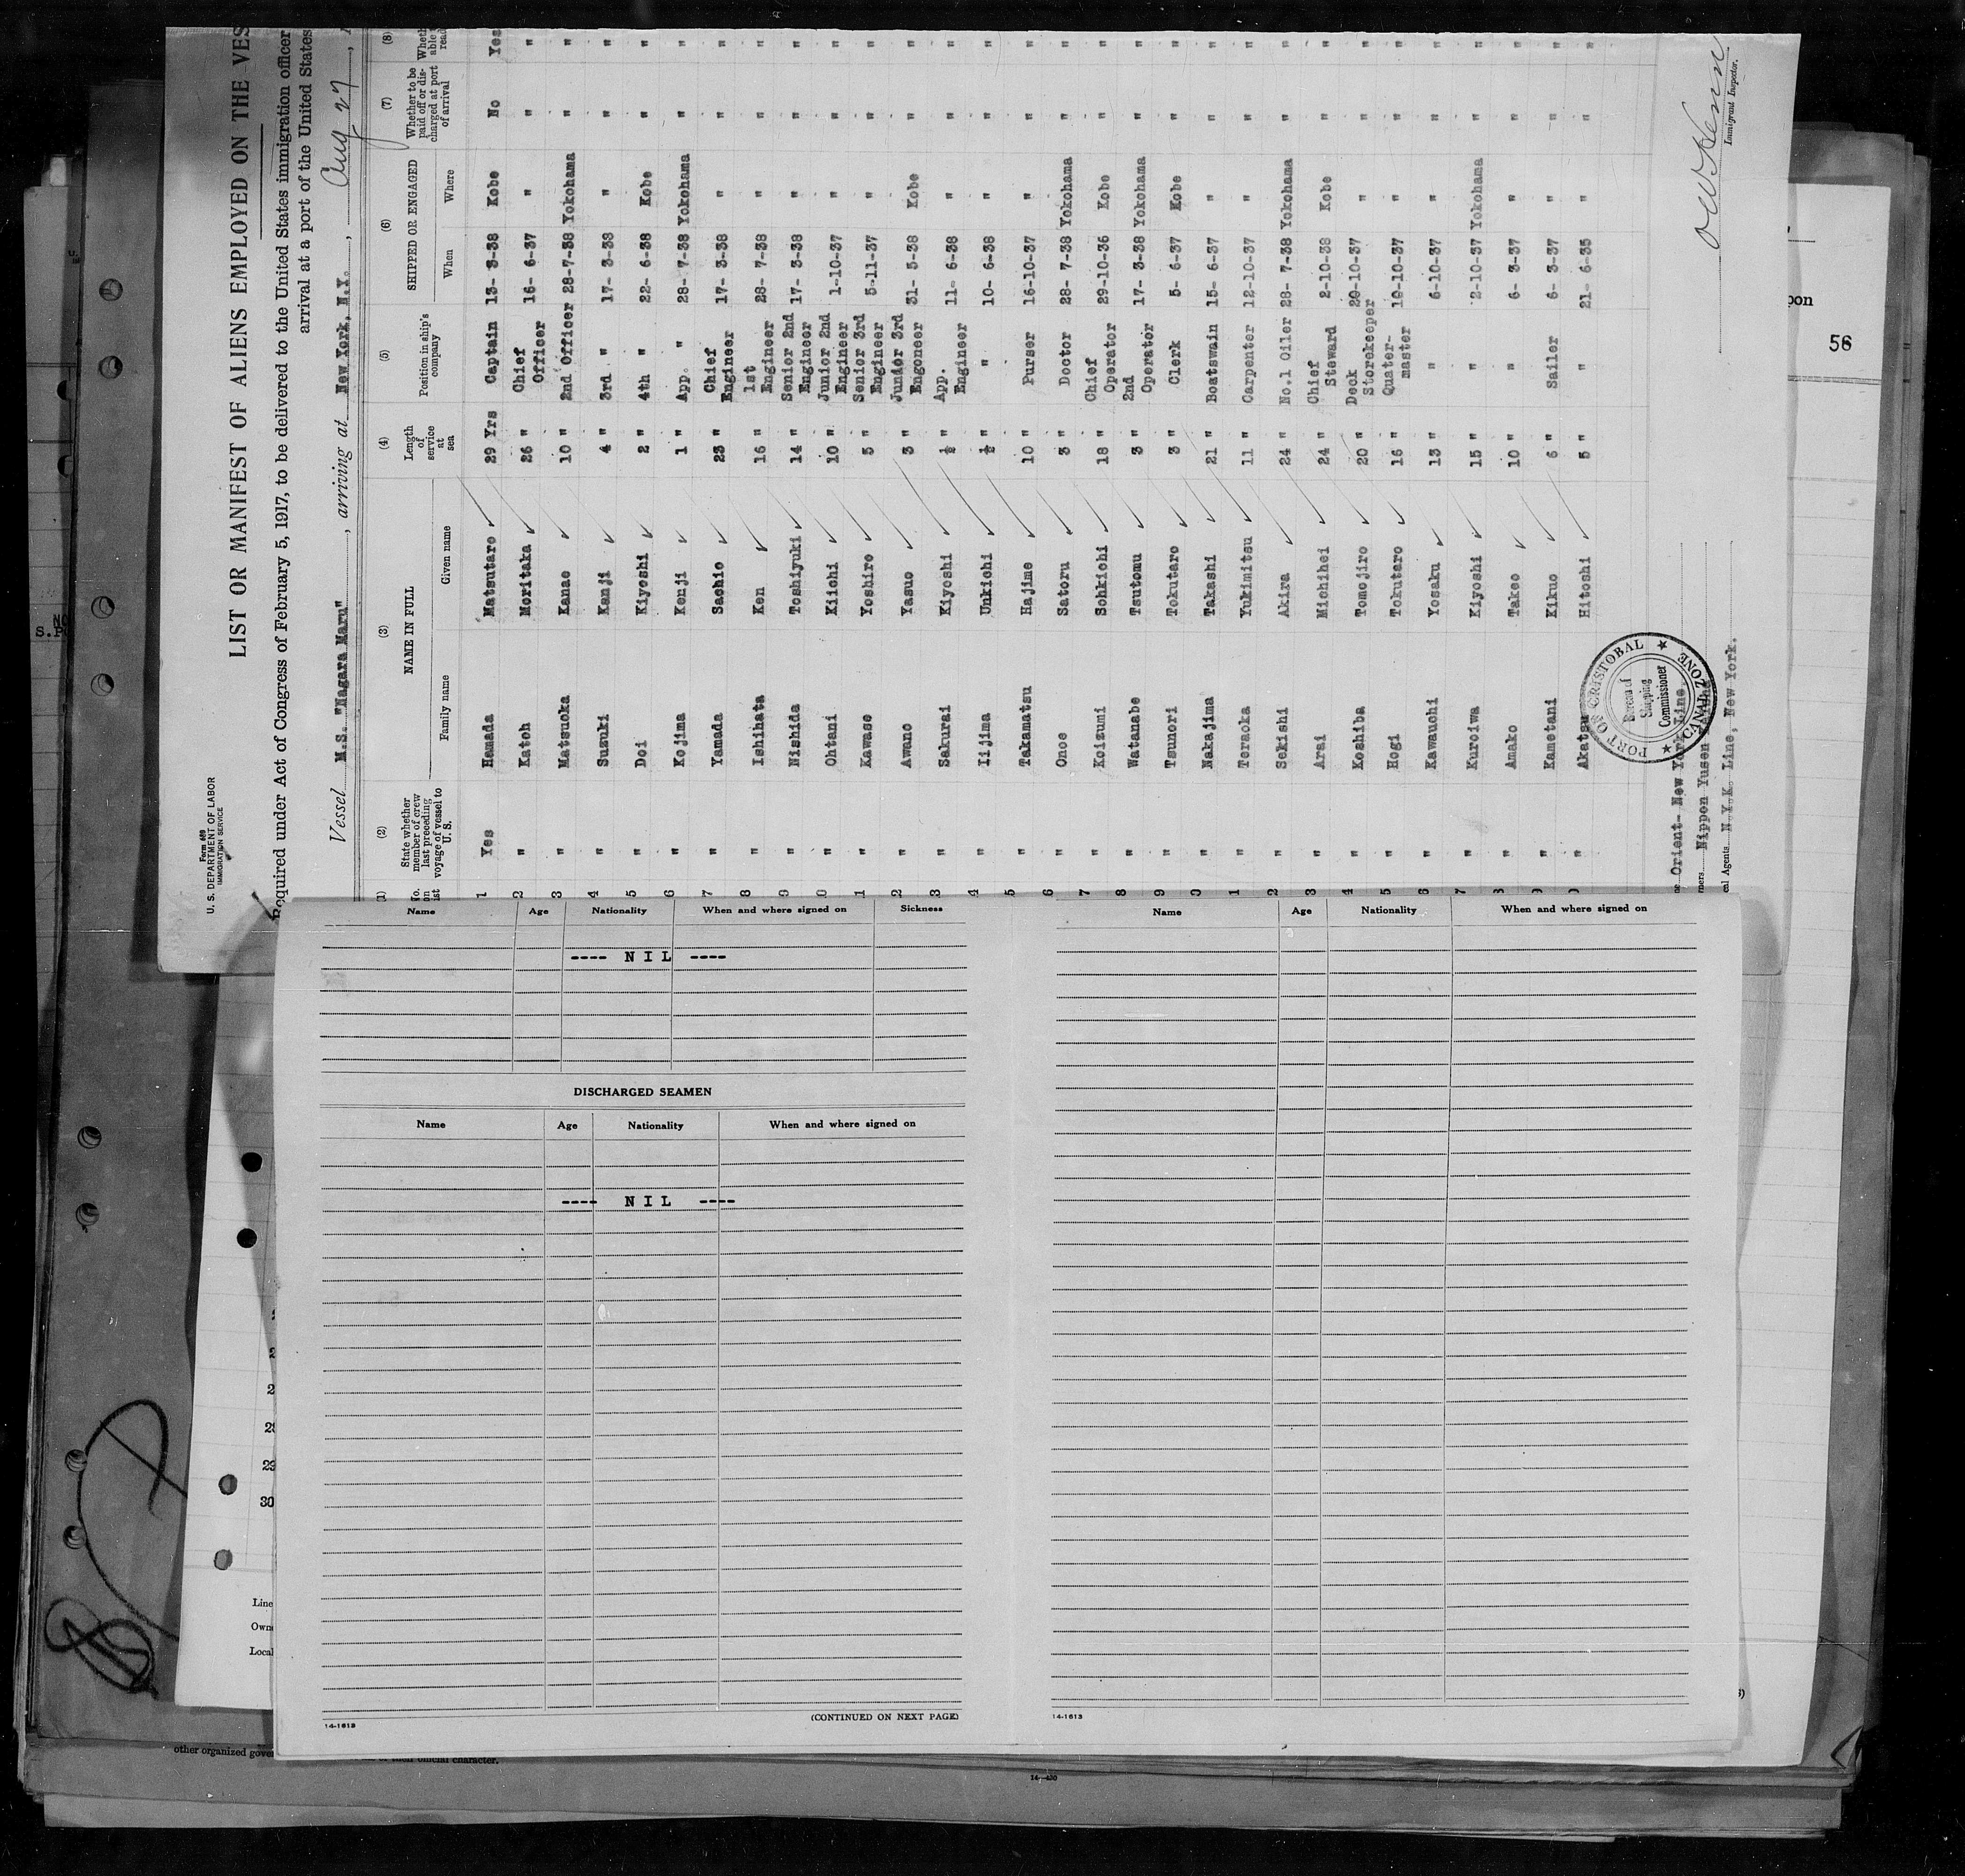 Form 489
U. S. DEPARTMENT OF LABOR
IMMIGRATION SERVICE
LIST OR MANIFEST OF ALIENS EMPLOYED ON THE VES
Required under Act of Congress of February 5, 1917, to be delivered to the United States immigration officer
arrival at a port of the United States
Vessel M.S. "Nagara Maru", arriving at New York, N.Y., Aug 27,
(1) (2) (3) (4) (5) (6) (7) (8)
No. on list
State whether member of crew last preceding voyage of vessel to U. S.
NAME IN FULL
Family name Given name
Length of service at sea
Position in ship's company
SHIPPED OR ENGAGED
When Where
Whether to be paid off or discharged at port of arrival
Wheth able read
1 Yes Hamada Matsutaro 29 Yrs Captain 13- 3-38 Kobe No Yes
2 " Katoh Moritaka 26 " Chief Officer 16- 6-37 " " "
3 " Matsuoka Kanae 10 " 2nd Officer 28-7-38 Yokohama " "
4 " Suzuki Kanji 4 " 3rd " 17- 3-38 " " "
5 " Doi Kiyoshi 2 " 4th " 22- 6-38 Kobe " "
6 " Kojima Kenji 1 " App. " 28- 7-38 Yokohama " "
7 " Yamada Sachio 23 " Chief Engineer 17- 3-38 " " "
8 " Ishihata Ken 16 " 1st Engineer 28- 7-38 " " "
9 " Nishida Toshiyuki 14 " Senior 2nd Engineer 17- 3-38 " " "
0 " Ohtani Kiichi 10 " Junior 2nd Engineer 1-10-37 " " "
1 " Kawase Yoshiro 5 " Senior 3rd Engineer 5-11-37 " " "
2 " Awano Yasuo 3 " Junior 3rd Engoneer 31- 5-38 Kobe " "
3 " Sakurai Kiyoshi ½ " App. Engineer 11- 6-38 " " "
4 " Iijima Unkichi ½ " " 10- 6-38 " " "
5 " Takamatsu Hajime 10 " Purser 16-10-37 " " "
6 " Onoe Satoru 3 " Doctor 28- 7-38 Yokohama " "
7 " Koizumi Sohkichi 18 " Chief Operator 29-10-36 Kobe " "
8 " Watanabe Tsutomu 3 " 2nd Operator 17- 3-38 Yokohama " "
9 " Tsunori Tokutaro 3 " Clerk 5- 6-37 Kobe " "
0 " Nakajima Takashi 21 " Boatswain 15- 6-37 " " "
1 " Teraoka Yukimitsu 11 " Carpenter 12-10-37 " " "
2 " Sekishi Akira 24 " No.1 Oiler 28- 7-38 Yokohama " "
3 " Arai Michihei 24 " Chief Steward 2-10-38 Kobe " "
4 " Koshiba Tomojiro 20 " Deck Storekeeper 20-10-37 " " "
5 " Hogi Tokutaro 16 " Quater-master 19-10-37 " " "
6 " Kawauchi Yosaku 13 " " 6-10-37 " " "
7 " Kuroiwa Kiyoshi 15 " " 2-10-37 Yokohama " "
8 " Amako Takeo 10 " " 6- 3-37 " " "
9 " Kametani Kikuo 6 " Sailor 6- 3-37 " " "
0 " Akatsu Hitoshi 5 " " 21- 6-35 " " "
ne Orient- New York Line.
wners Nippon Yusen Kaisha
cal Agents N.Y.K. Line, New York.
PORT OF CRISTOBAL ★ CANAL ZONE ★
Bureau of
Shipping
Commissioner
Immigrant Inspector.
Name Age Nationality When and where signed on Sickness
---- NIL ----
DISCHARGED SEAMEN
Name Age Nationality When and where signed on
---- NIL ----
(CONTINUED ON NEXT PAGE)
14-1613
Name Age Nationality When and where signed on
14-1613
NO
S.P
pon
56
2
29
30
Line
Owne
Local
other organized gove
of their official character.
14-430